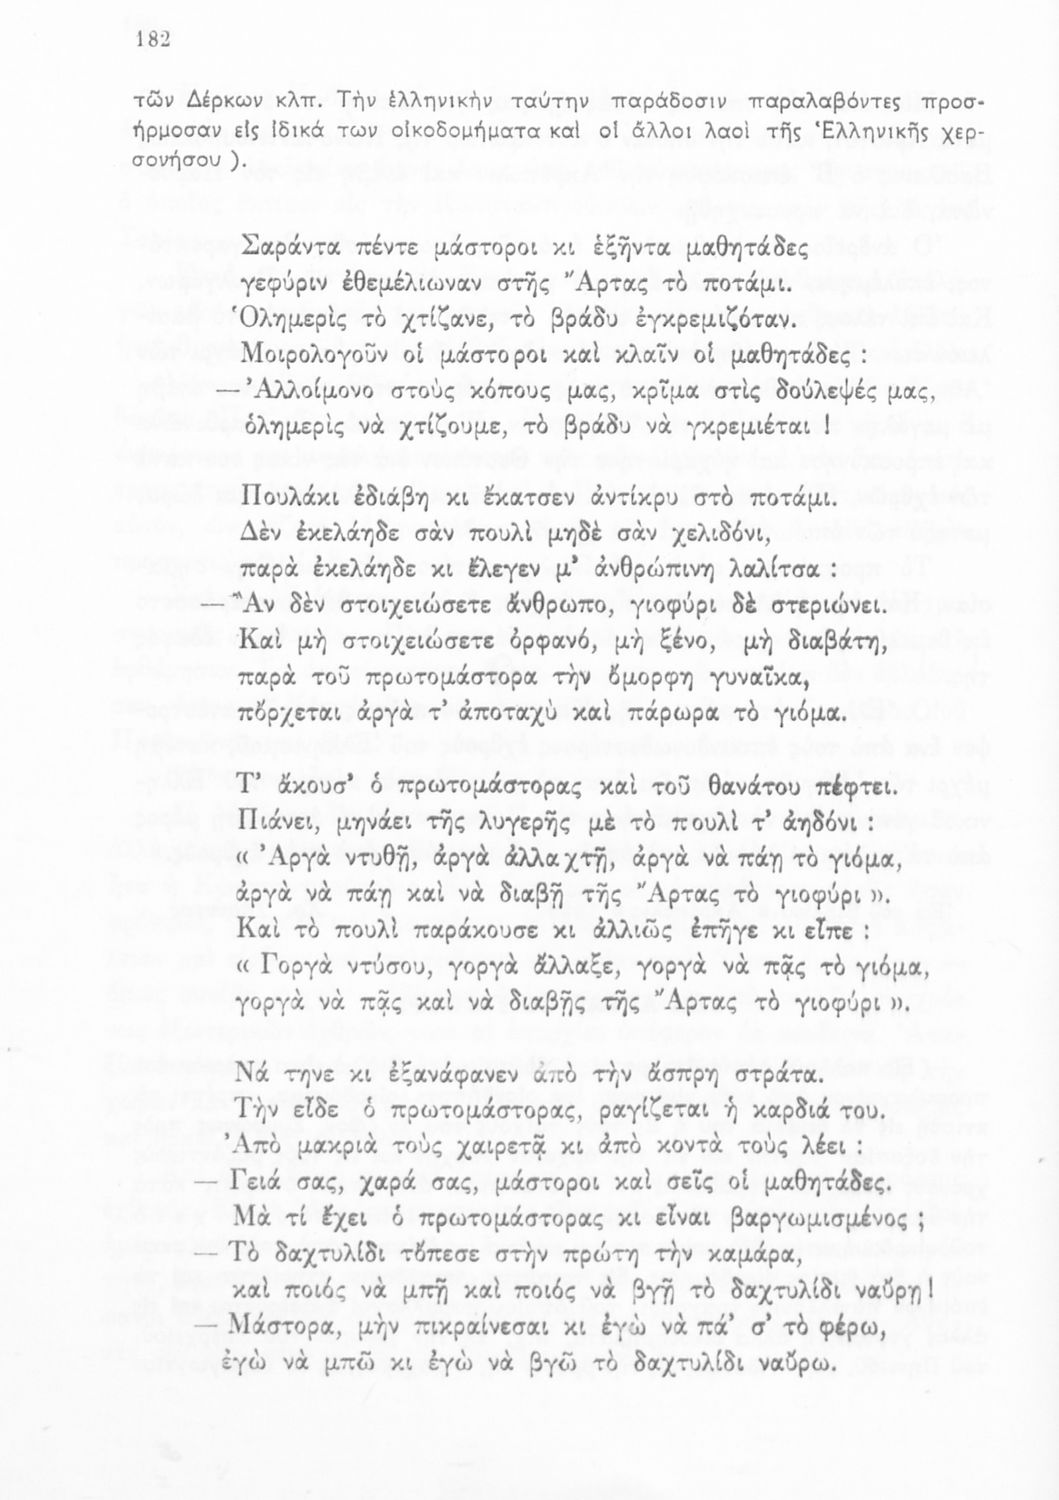 182
τῶν Δέρκων κλπ. Τὴν ἑλληνικὴν ταύτην παράδοσιν παραλαβόντες προσ-
ήρμοσαν εἰς ἰδικά των οἰκοδομήματα καὶ οἱ ἄλλοι λαοὶ τῆς Ἑλληνικῆς χερ-
σονήσου ).
Σαράντα πέντε μάστοροι κι ἑξῆντα μαθητάδες
γεφύριν ἐθεμέλιωναν στῆς Ἄρτας τὸ ποτάμι.
Ὁλημερὶς τὸ χτίζανε, τὸ βράδυ ἐγκρεμιζόταν.
Μοιρολογοῦν οἱ μάστοροι καὶ κλαῖν οἱ μαθητάδες :
— Ἀλλοίμονο στοὺς κόπους μας, κρῖμα στὶς δούλεψές μας,
ὁλημερὶς νὰ χτίζουμε, τὸ βράδυ νὰ γκρεμιέται !
Πουλάκι ἐδιάβη κι ἔκατσεν ἀντίκρυ στὸ ποτάμι.
Δὲν ἐκελάηδε σὰν πουλὶ μηδὲ σὰν χελιδόνι,
παρὰ ἐκελάηδε κι ἔλεγεν μ’ ἀνθρώπινη λαλίτσα :
— Ἂν δὲν στοιχειώσετε ἄνθρωπο, γιοφύρι δὲ στεριώνει.
Καὶ μὴ στοιχειώσετε ὀρφανό, μὴ ξένο, μὴ διαβάτη,
παρὰ τοῦ πρωτομάστορα τὴν ὄμορφη γυναῖκα,
πὄρχεται ἀργὰ τ’ ἀποταχὺ καὶ πάρωρα τὸ γιόμα.
Τ’ ἄκουσ’ ὁ πρωτομάστορας καὶ τοῦ θανάτου πέφτει.
Πιάνει, μηνάει τῆς λυγερῆς μὲ τὸ πουλὶ τ’ ἀηδόνι :
« Ἀργὰ ντυθῇ, ἀργὰ ἀλλαχτῇ, ἀργὰ νὰ πάῃ τὸ γιόμα,
ἀργὰ νὰ πάῃ καὶ νὰ διαβῇ τῆς Ἄρτας τὸ γιοφύρι ».
Καὶ τὸ πουλὶ παράκουσε κι ἀλλιῶς ἐπῆγε κι εἶπε :
« Γοργὰ ντύσου, γοργὰ ἄλλαξε, γοργὰ νὰ πᾷς τὸ γιόμα,
γοργὰ νὰ πᾷς καὶ νὰ διαβῇς τῆς Ἄρτας τὸ γιοφύρι ».
Νά τηνε κι ἐξανάφανεν ἀπὸ τὴν ἄσπρη στράτα.
Τὴν εἶδε ὁ πρωτομάστορας, ραγίζεται ἡ καρδιά του.
Ἀπὸ μακριὰ τοὺς χαιρετᾷ κι ἀπὸ κοντὰ τοὺς λέει :
— Γειά σας, χαρά σας, μάστοροι καὶ σεῖς οἱ μαθητάδες.
Μὰ τί ἔχει ὁ πρωτομάστορας κι εἶναι βαργωμισμένος ;
— Τὸ δαχτυλίδι τὄπεσε στὴν πρώτη τὴν καμάρα,
καὶ ποιός νὰ μπῇ καὶ ποιός νὰ βγῇ τὸ δαχτυλίδι ναὔρῃ !
— Μάστορα, μὴν πικραίνεσαι κι ἐγὼ νὰ πά’ σ’ τὸ φέρω,
ἐγὼ νὰ μπῶ κι ἐγὼ νὰ βγῶ τὸ δαχτυλίδι ναὔρω.